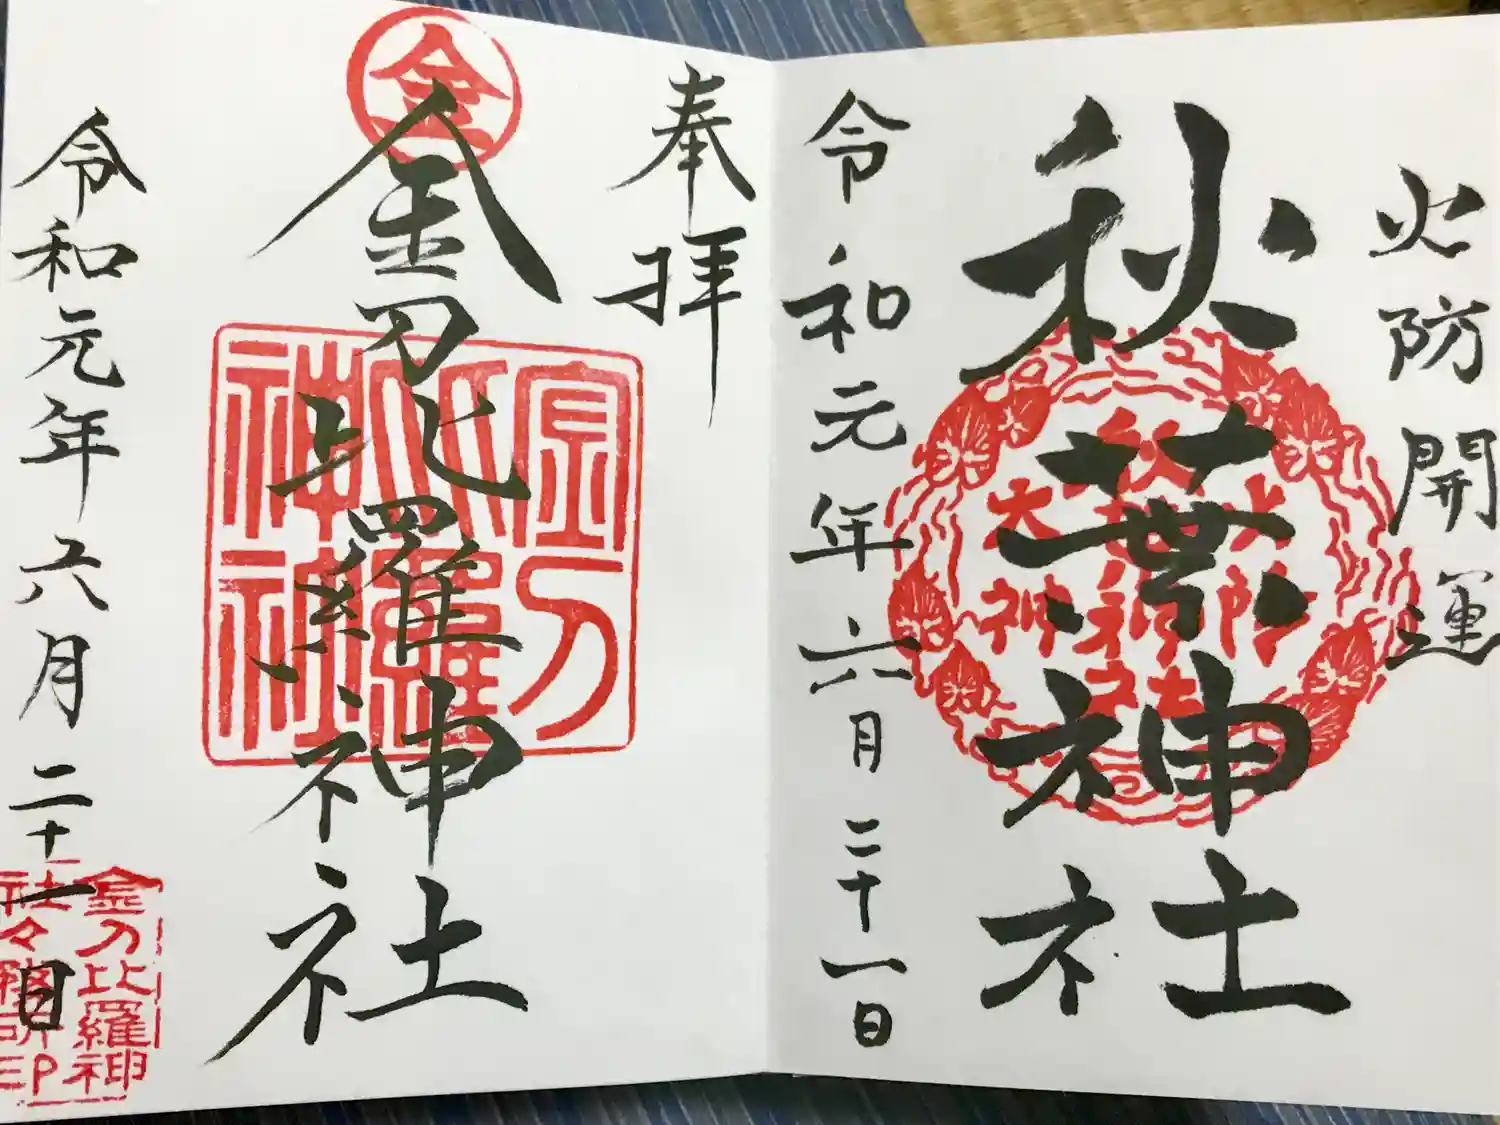 火防開運
秋葉神社
令和元年六月二十一日
奉拝
金
金刀比羅神社
金刀比羅神社
令和元年六月二十一日
金刀比羅神
社々務所印